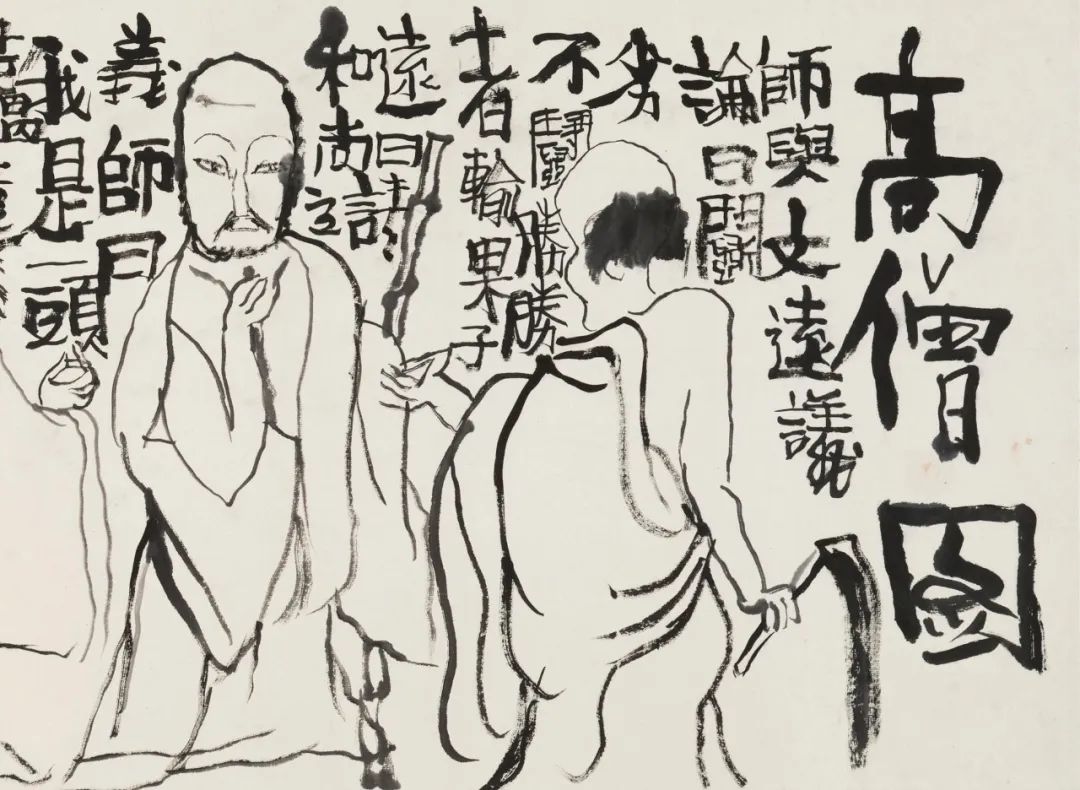 高僧圖
師與文遠議
論曰鬪
劣
不鬪勝勝
者輸果子
遠曰請
和尚立
義師曰
我是一頭